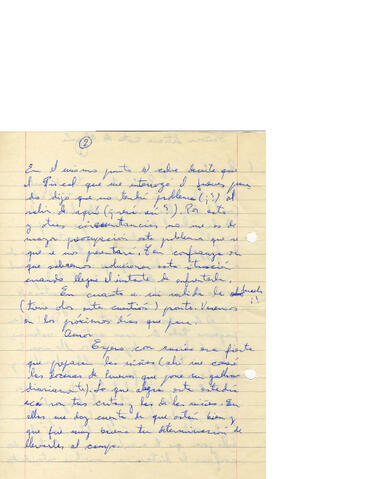 2
En el mismo punto 4) cabe decirte que
el Fiscal que me interrogó el jueves pasa
do dijo que no tendré problema (¿?) al
salir de aquí (¿será así?). Por esto
y otras circunstancias no me es de
mayor preocupación este problema que sé
que se nos presentará. Ten confianza en
que sabremos solucionar esta situación
cuando llegue el instante de enfrentarla.
En cuanto a mi salida de
(tomo dos esta cuestión) pronto. Veremos
en los próximos días que pasa.
Amor
Espero con ansias esa fiesta
que preparan las niñas (ahí me comeré
las docenas de huevos que pone mi gallina
diariamente). Lo que alegra este
acá son tus cartas y las de las niñas. En
ellas me doy cuenta de que están bien y
que fue muy buena tu determinación de
llevarlas al campo.